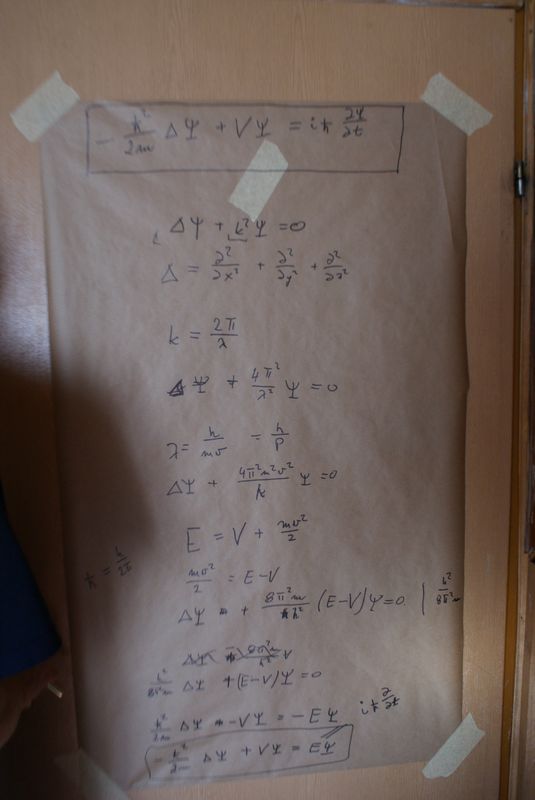 - ħ²/2m ΔΨ + VΨ = iħ ∂Ψ/∂t
ΔΨ + k²Ψ = 0
Δ = ∂²/∂x² + ∂²/∂y² + ∂²/∂z²
k = 2π/λ
ΔΨ + 4π²/λ² Ψ = 0
λ = h/mv = h/p
ΔΨ + 4π²m²v²/h Ψ = 0
E = V + mv²/2
ħ = h/2π
mv²/2 = E-V
ΔΨ + 8π²m/h² (E-V)Ψ = 0. | h²/8π²m
h²/8π²m ΔΨ + (E-V)Ψ = 0
ħ²/2m ΔΨ - VΨ = -EΨ iħ ∂/∂t
- ħ²/2m ΔΨ + VΨ = EΨ